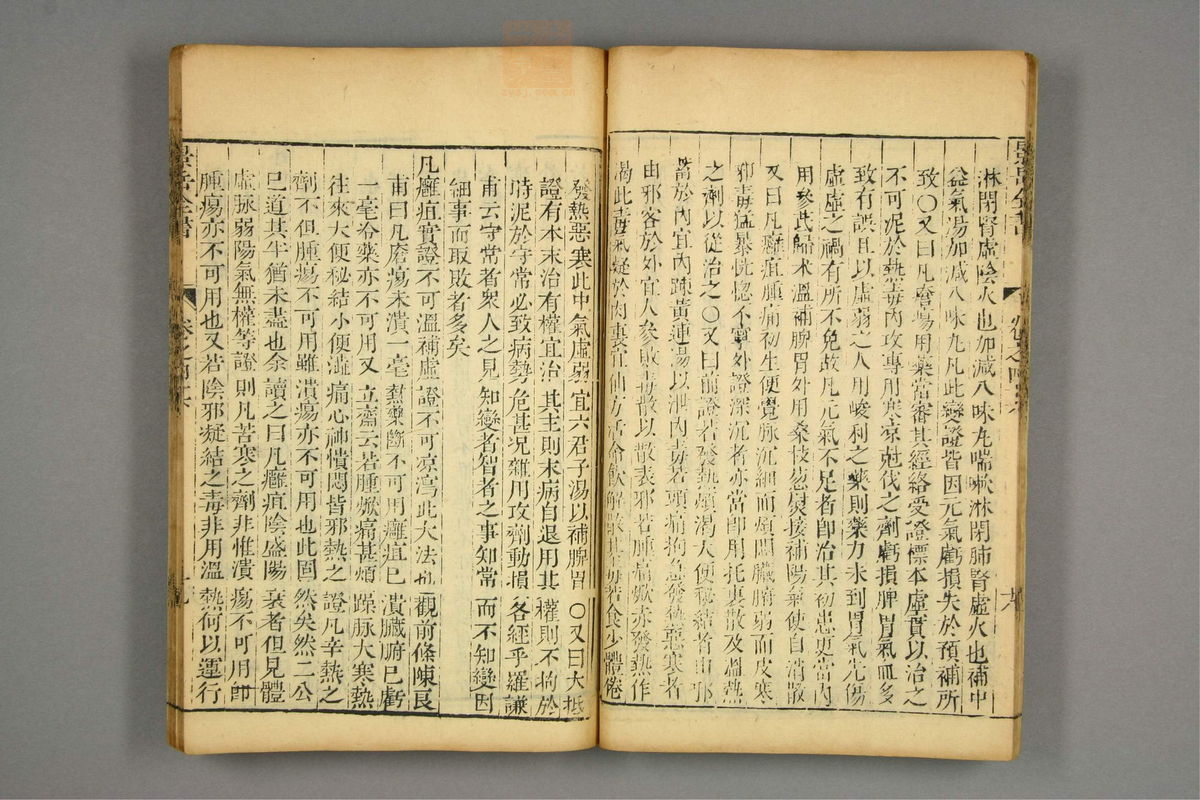 淋閉腎虛陰火也加減八味丸喘嗽淋閉肺腎虛火也補中
益氣湯加減八味丸凡此變證皆因元氣虧損失於預補所
致〇又曰凡瘡瘍用藥當審其經絡受證標本虛實以治之
不可泥於熱毒內攻專用寒凉尅伐之劑虧損脾胃氣血多
致有誤且以虛弱之人用峻利之藥則藥力未到胃氣先傷
虛虛之禍有所不免故凡元氣不足者即治其初患更當內
用參芪歸术溫補脾胃外用桑枝葱熨接補陽氣使自消散
又曰凡癰疽腫痛初生便覺脉沉細而煩悶臟腑弱而皮寒
邪毒猛暴恍惚不寧外證深沉者亦當即用托裏散及溫熱
之劑以從治之〇又曰前證若發熱煩渴大便秘結者由邪
蓄於內宜內踈黃連湯以泄內毒若頭痛拘急發熱惡寒者
由邪客於外宜人參敗毒散以散表邪若腫痛焮赤發熱作
渴此毒氣凝於肉裏宜仙方活命飲解散其毒若食少體倦
發熱惡寒此中氣虛弱宜六君子湯以補脾胃〇又曰大抵
證有本末治有權宜治其主則末病自退用其權則不拘於
時泥於守常必致病勢危甚况雜用攻劑動損各經乎羅謙
甫云守常者衆人之見知變者智者之事知常而不知變因
細事而取敗者多矣
凡癰疽實證不可溫補虛證不可凉瀉此大法也觀前條陳良
甫曰凡瘡瘍未潰一毫熱藥斷不可用癰疽已潰臟腑已虧
一毫冷藥亦不可用又立齋云若腫焮痛甚煩躁脉大寒熱
往來大便秘結小便澁痛心神憒悶皆邪熱之證凡辛熱之
劑不但腫瘍不可用雖潰瘍亦不可用也此固然矣然二公
已道其半猶未盡也余讀之曰凡癰疽陰盛陽衰者但見體
虛脉弱陽氣無權等證則凡苦寒之劑非惟潰瘍不可用即
腫瘍亦不可用也又若陰邪凝結之毒非用溫熱何以運行
景岳全書
卷之四六
十九